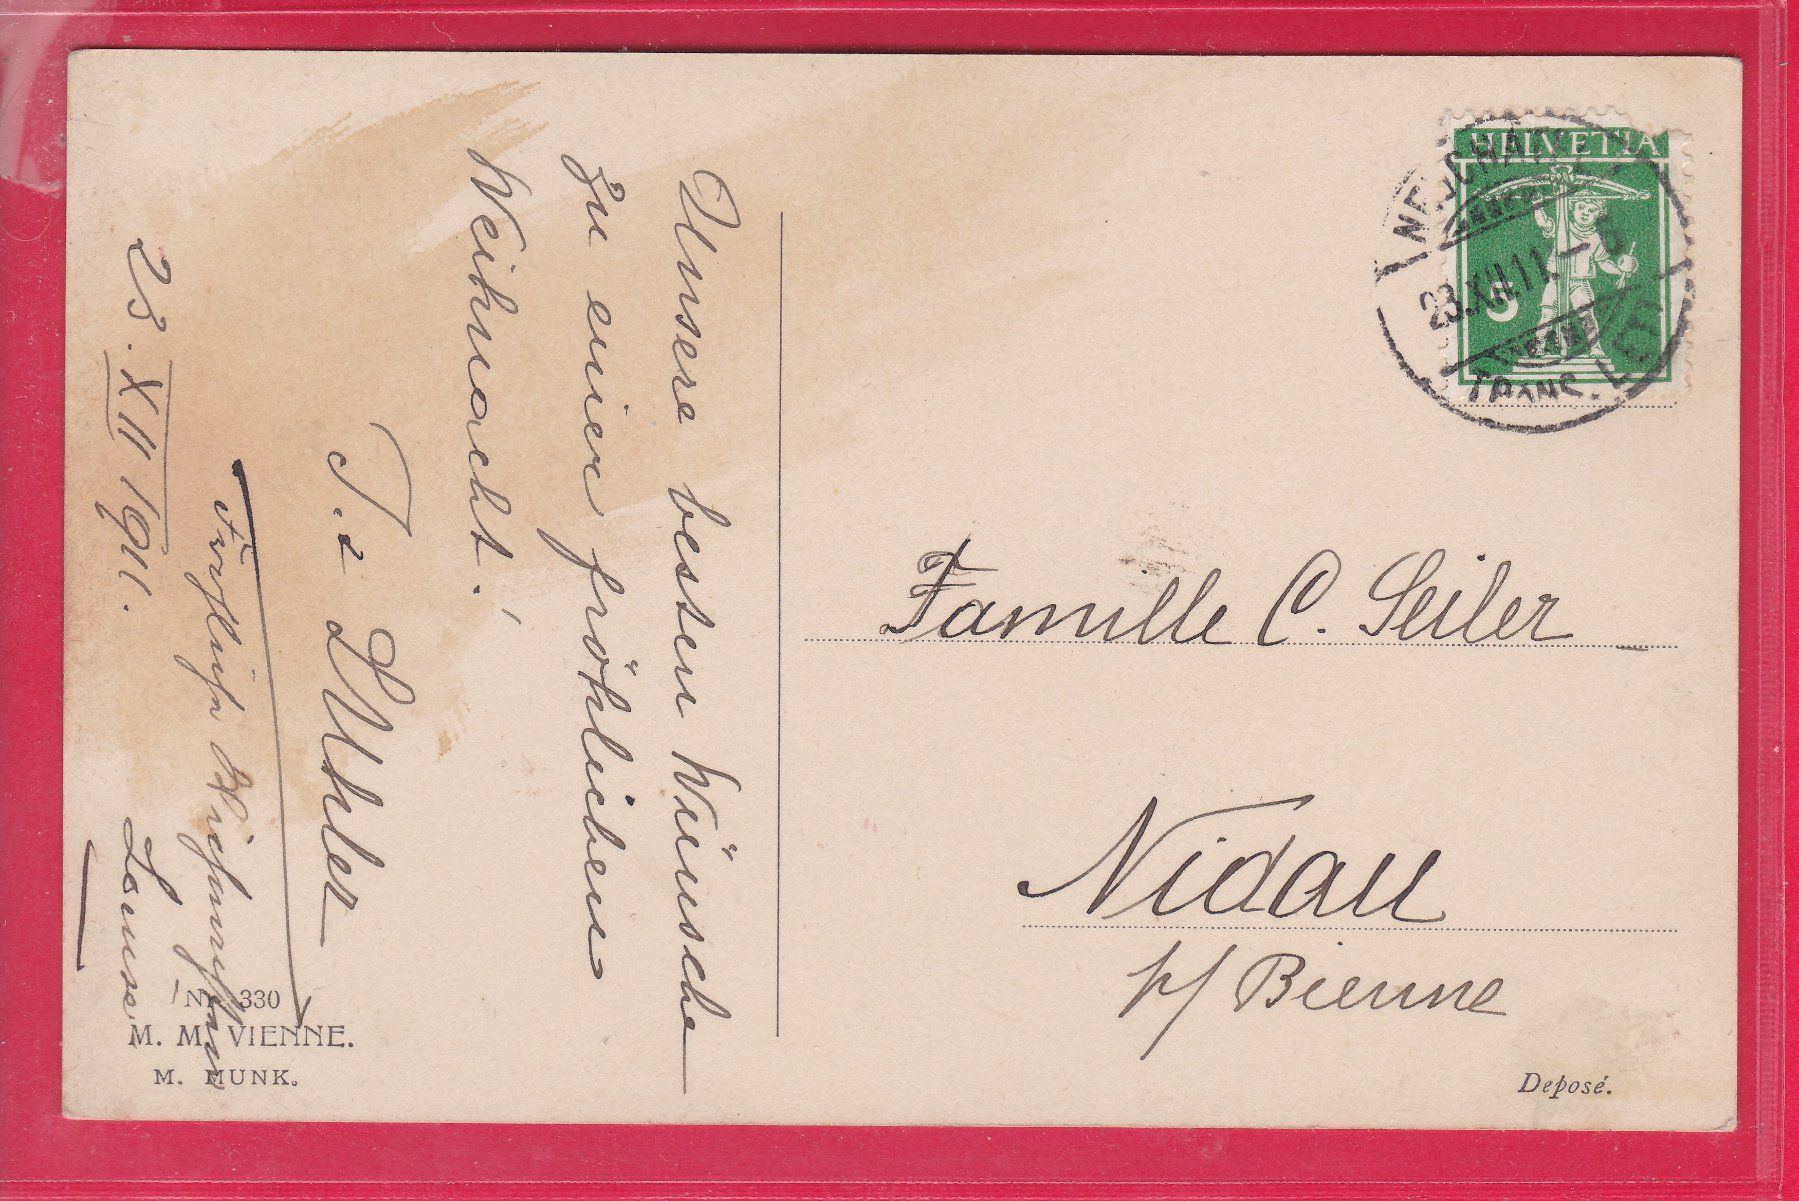 Unsere besten Wünsche
zu einer fröhlichen
Weihnacht!
23. XII 1911.
Louise
Nr. 330
M. M. VIENNE.
M. MUNK.
HELVETIA
5
23.XII.11.
TRANS. L
Famille C. Seiler
Nidau
p/ Bienne
Deposé.